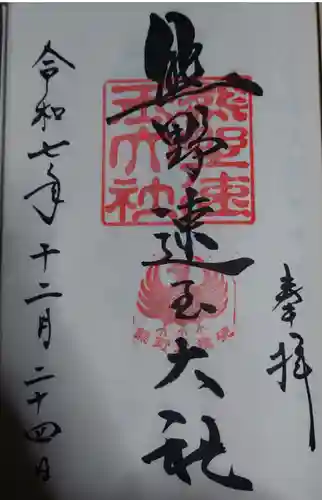 奉拝
熊野速玉大社
令和七年十二月二十四日
熊野速玉大社